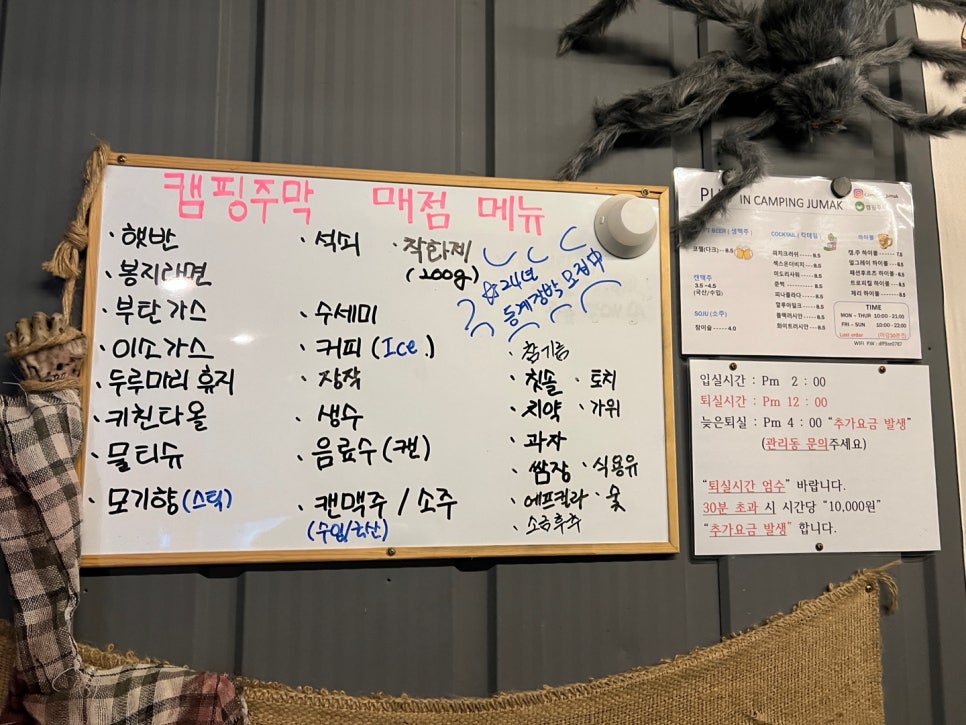 캠핑주막 매점 메뉴
· 햇반
· 봉지라면
· 부탄가스
· 이소가스
· 두루마리 휴지
· 키친타올
· 물티슈
· 모기향 (스틱)
· 석쇠
· 수세미
· 커피 (Ice.)
· 장작
· 생수
· 음료수 (캔)
· 캔맥주 / 소주
(수입/국산)
· 착화제
(200g)
☆24년
동계장박 모집中
· 참기름
· 칫솔 · 토치
· 치약 · 가위
· 과자
· 쌈장 · 식용유
· 에프킬라 · 숯
· 소금후추
IN CAMPING JUMAK
캠핑주막
BEER ( 생맥주 )
코젤(다크)-- 8.5
캔맥주
3.5 ~4.5
(국산/수입)
SOJU (소주)
참이슬 ----- 4.0
COCKTAIL ( 칵테일 )
피치크러쉬 ----- 8.5
섹스온더비치 ----- 8.5
미도리사워 ----- 8.5
준벅 ----- 8.5
피나콜라다 ----- 8.5
깔루아밀크 ----- 8.5
블랙러시안 ----- 8.5
화이트러시안 ----- 8.5
하이볼
캠.주 하이볼 ----- 7.5
얼그레이 하이볼 ---- 8.5
패션후르츠 하이볼 --- 8.5
트로피컬 하이볼 ---- 8.5
체리 하이볼 ------ 8.5
TIME
MON ~ THUR 10:00 - 21:00
FRI ~ SUN 10:00 - 23:00
Last order
입실시간 : Pm 2 : 00
퇴실시간 : Pm 12 : 00
늦은퇴실 : Pm 4 : 00 “추가요금 발생”
(관리동 문의주세요)
“퇴실시간 엄수” 바랍니다.
30분 초과 시 시간당 “10,000원”
“추가요금 발생” 합니다.